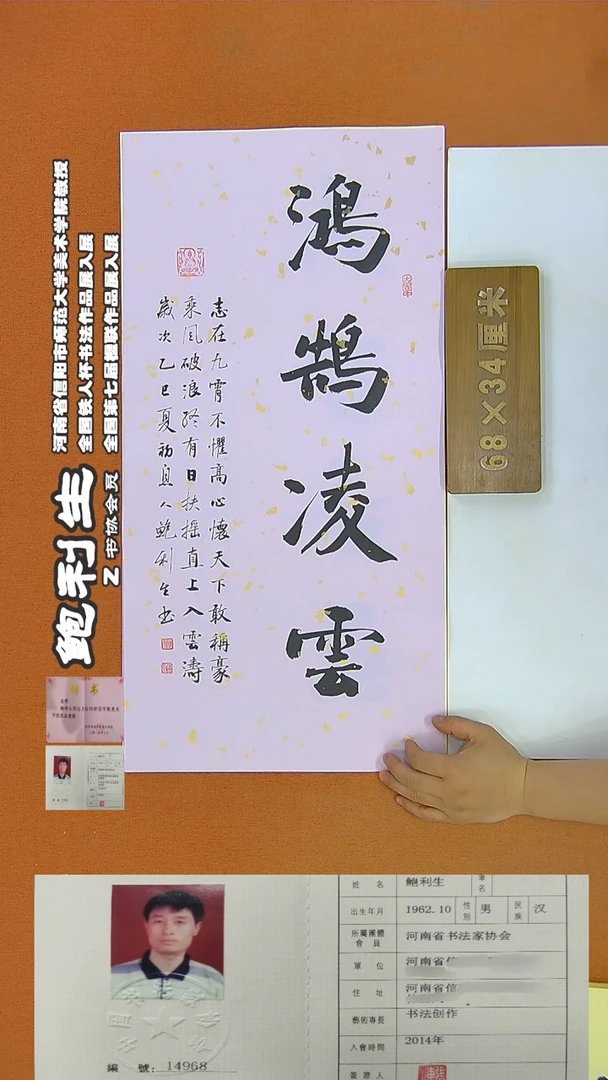 鴻鵠凌雲
志在九霄不懼高心懷天下敢稱豪
乘風破浪終有日扶搖直上入雲濤
歲次乙巳夏初息人鮑利生书
68×34厘米
河南省信阳市师范大学美术学院教授
全国铁人杯书法作品展入展
全国第七届楹联作品展入展
鲍利生
书协会员
聘书
姓名 鲍利生 筆名
出生年月 1962.10 性别 男 民族 汉
所屬團體會員 河南省书法家协会
單位 河南省信
住址 河南省信
藝術專長 书法创作
入會時間 2014年
簽證人
編號: 14968